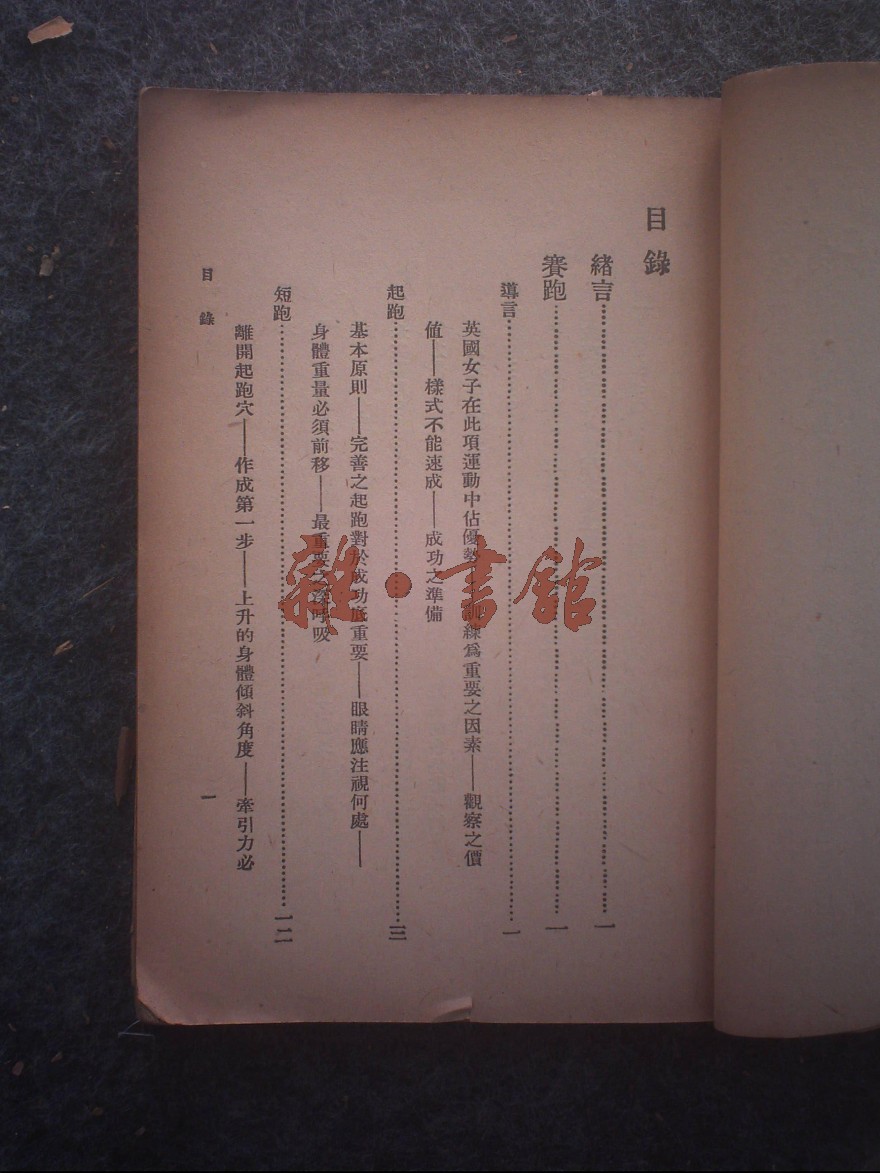 目錄
緒言……一
賽跑……一
導言……一
英國女子在此項運動中佔優勢——訓練爲重要之因素——觀察之價
值——樣式不能速成——成功之準備
起跑……三
基本原則——完善之起跑對於成功底重要——眼睛應注視何處——
身體重量必須前移——最重要之深呼吸
短跑……一二
離開起跑穴——作成第一步——上升的身體傾斜角度——牽引力必
目錄 一
雜·書館